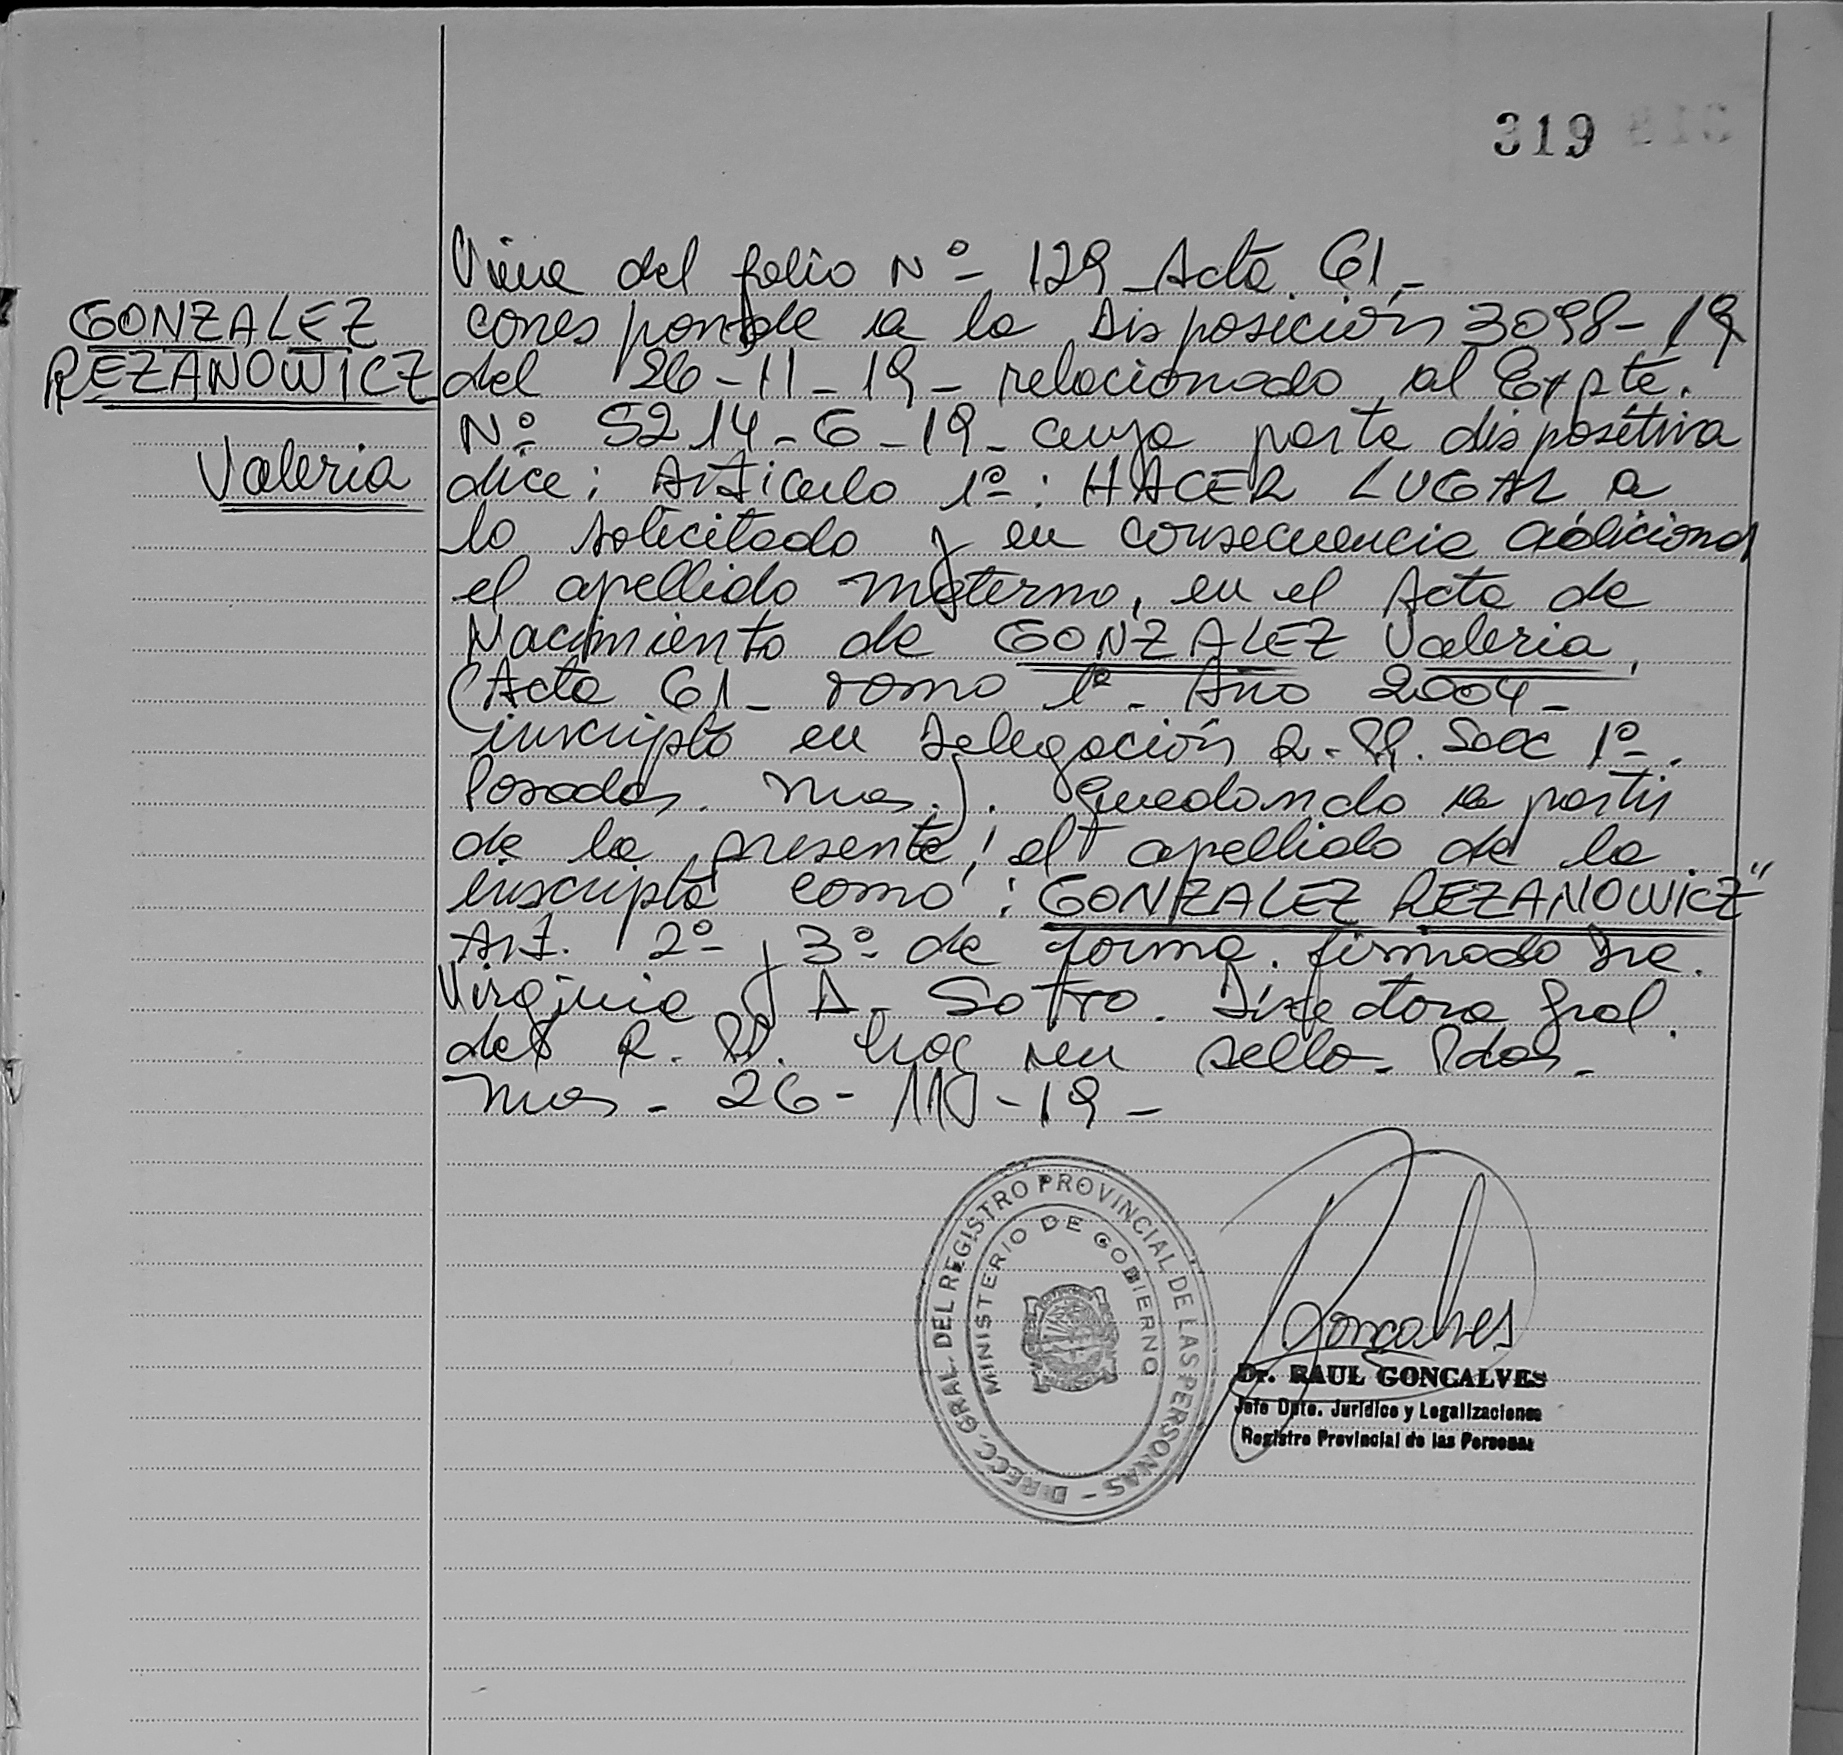 319
GONZALEZ
REZANOWICZ
Valeria
Viene del folio Nº 129 - Acta 61.-
corresponde a la Disposición 3098-19
del 26-11-19- relacionado al Expte.
Nº 5214-G-19- cuya parte dispositiva
dice: Artículo 1º: HACER LUGAR a
lo solicitado y en consecuencia adicionar
el apellido materno, en el Acta de
Nacimiento de GONZALEZ Valeria,
(Acta 61- Tomo 1º- Año 2004-
inscripta en Delegación R.PP. Secc 1º-.
Posadas. Mnes.). Quedando a partir
de la presente, el apellido de la
inscripta como: "GONZALEZ REZANOWICZ"
Art. 2º y 3º de forma. firmado Dra.
Virginia A. Sotro. Directora Gral.
del R.PP. hay un sello. Pdas.-
Mnes - 26-11-19-
DIRECC. GRAL. DEL REGISTRO PROVINCIAL DE LAS PERSONAS -
MINISTERIO DE GOBIERNO
Goncalves
Dr. RAUL GONCALVES
Jefe Dpto. Jurídico y Legalizaciones
Registro Provincial de las Personas